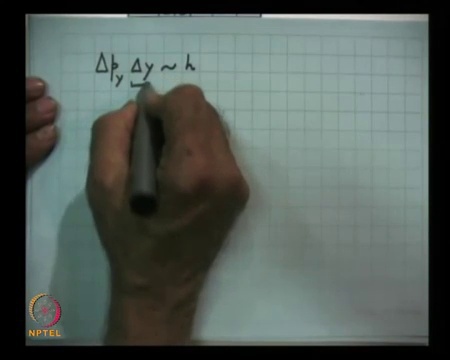 Δp_y Δy ~ h
NPTEL